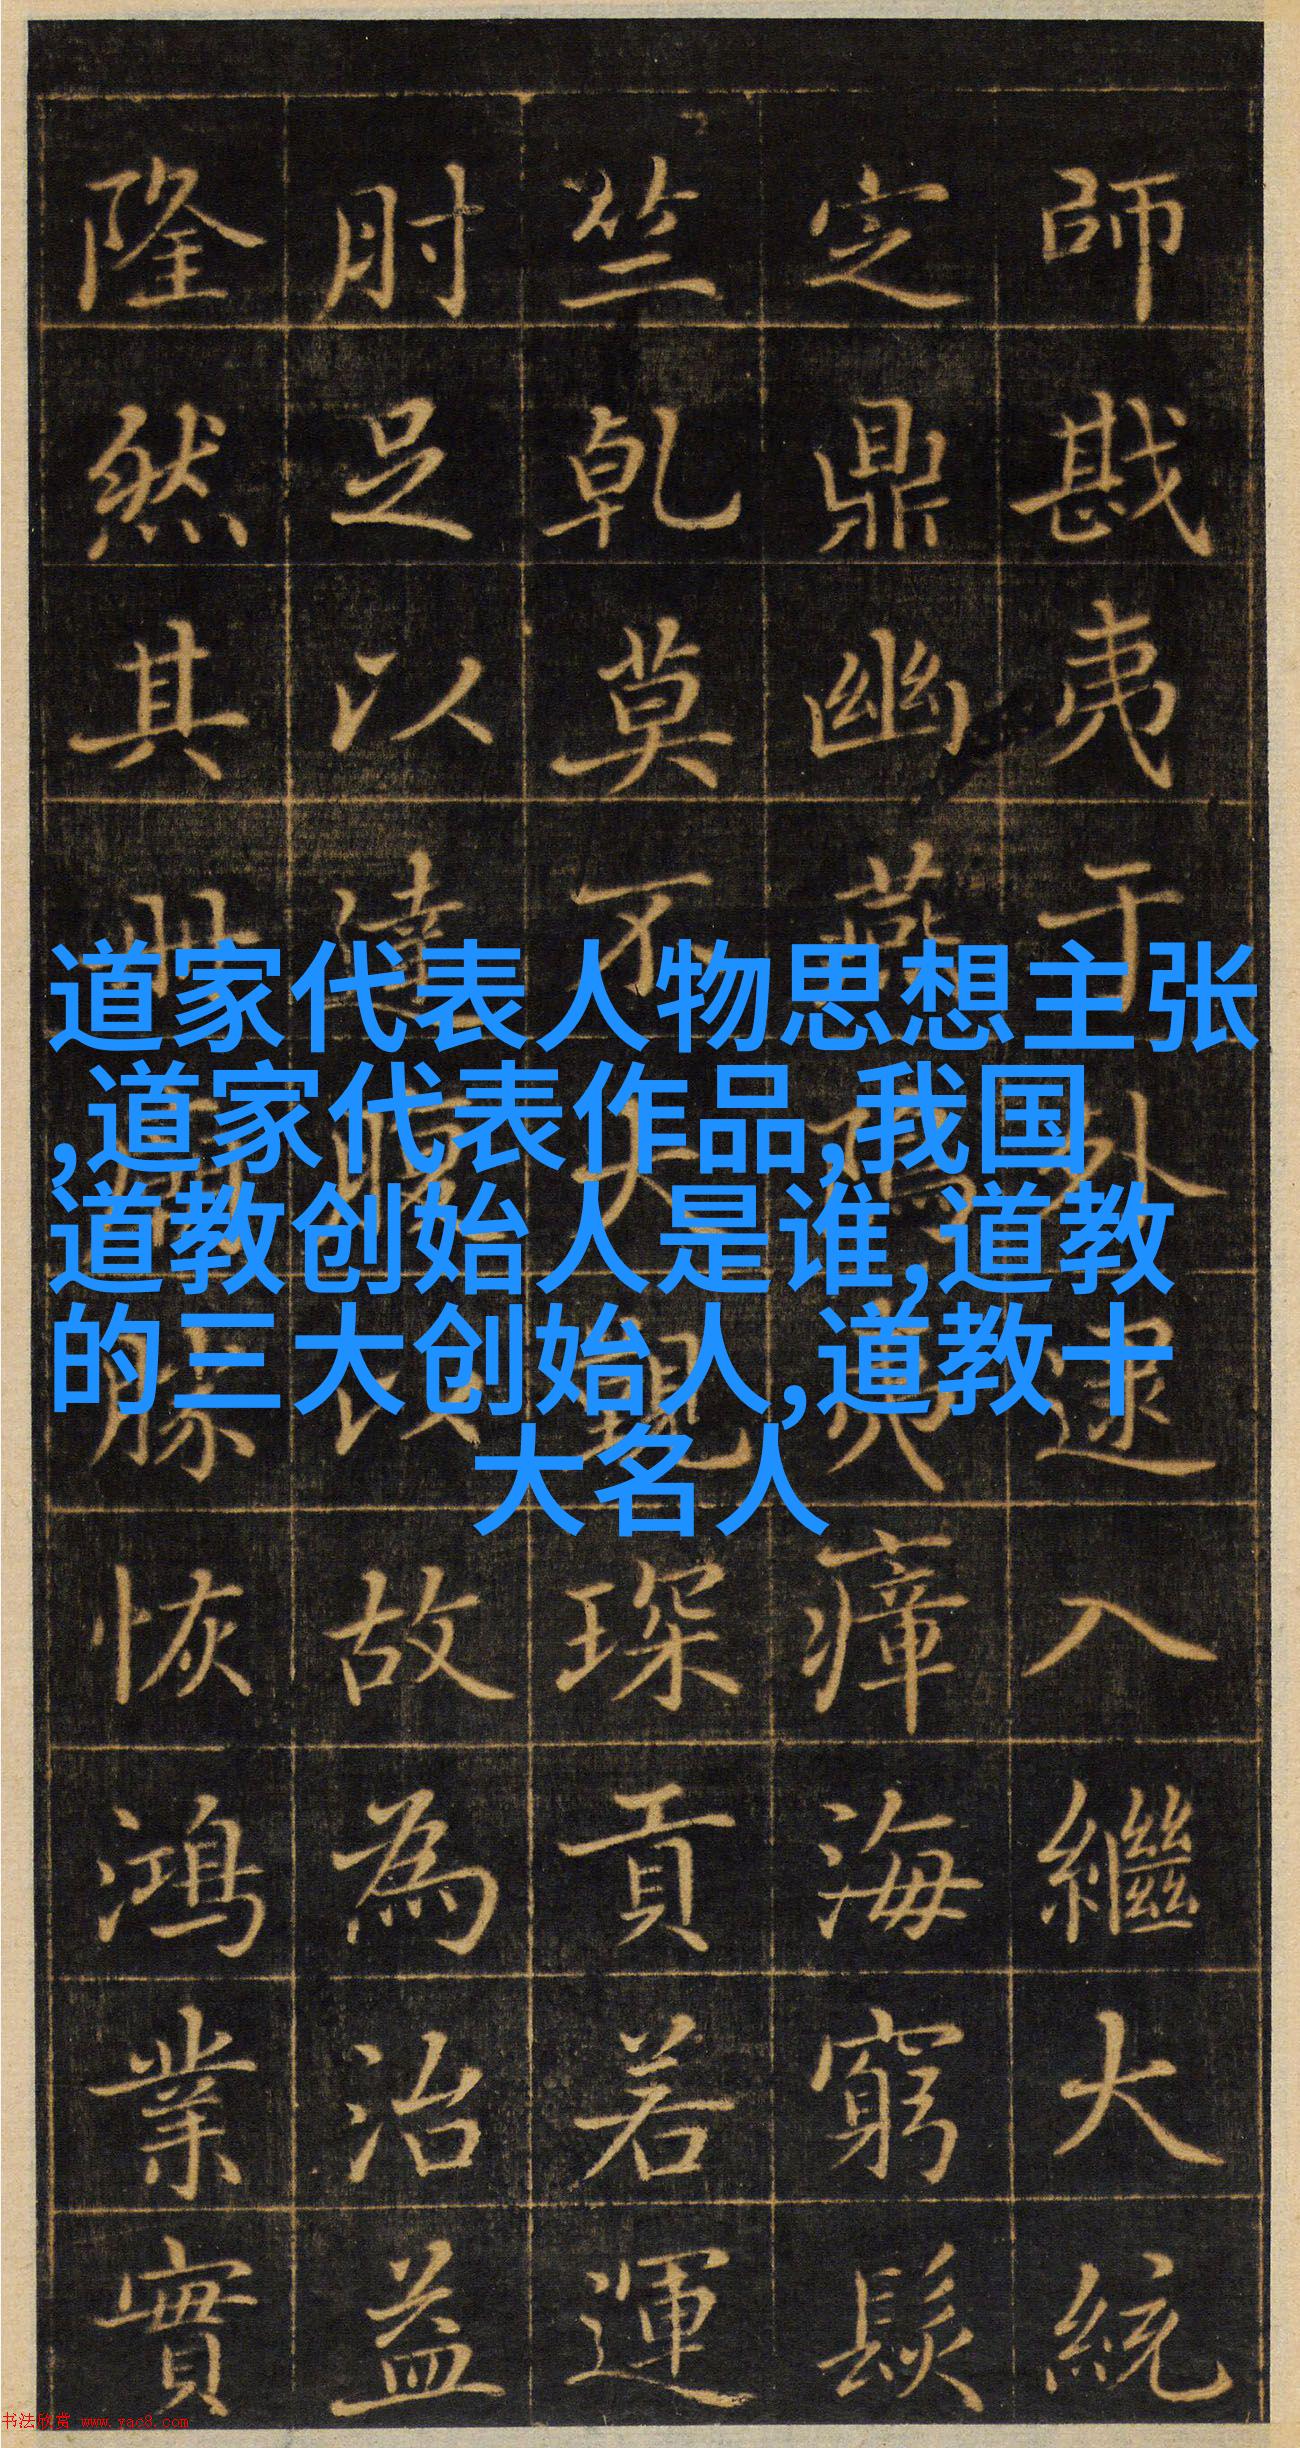 師戡夷于逮入繼大統
定鼎幽燕瘴海窮髮
竺乾莫不琛貢若運
肘足以達以故為治益
隆然其勝恢鴻業實
道家代表人物思想主张
,道家代表作品,我国
道教创始人是谁,道教
的三大创始人,道教十
大名人
书法欣赏 www.yac8.com